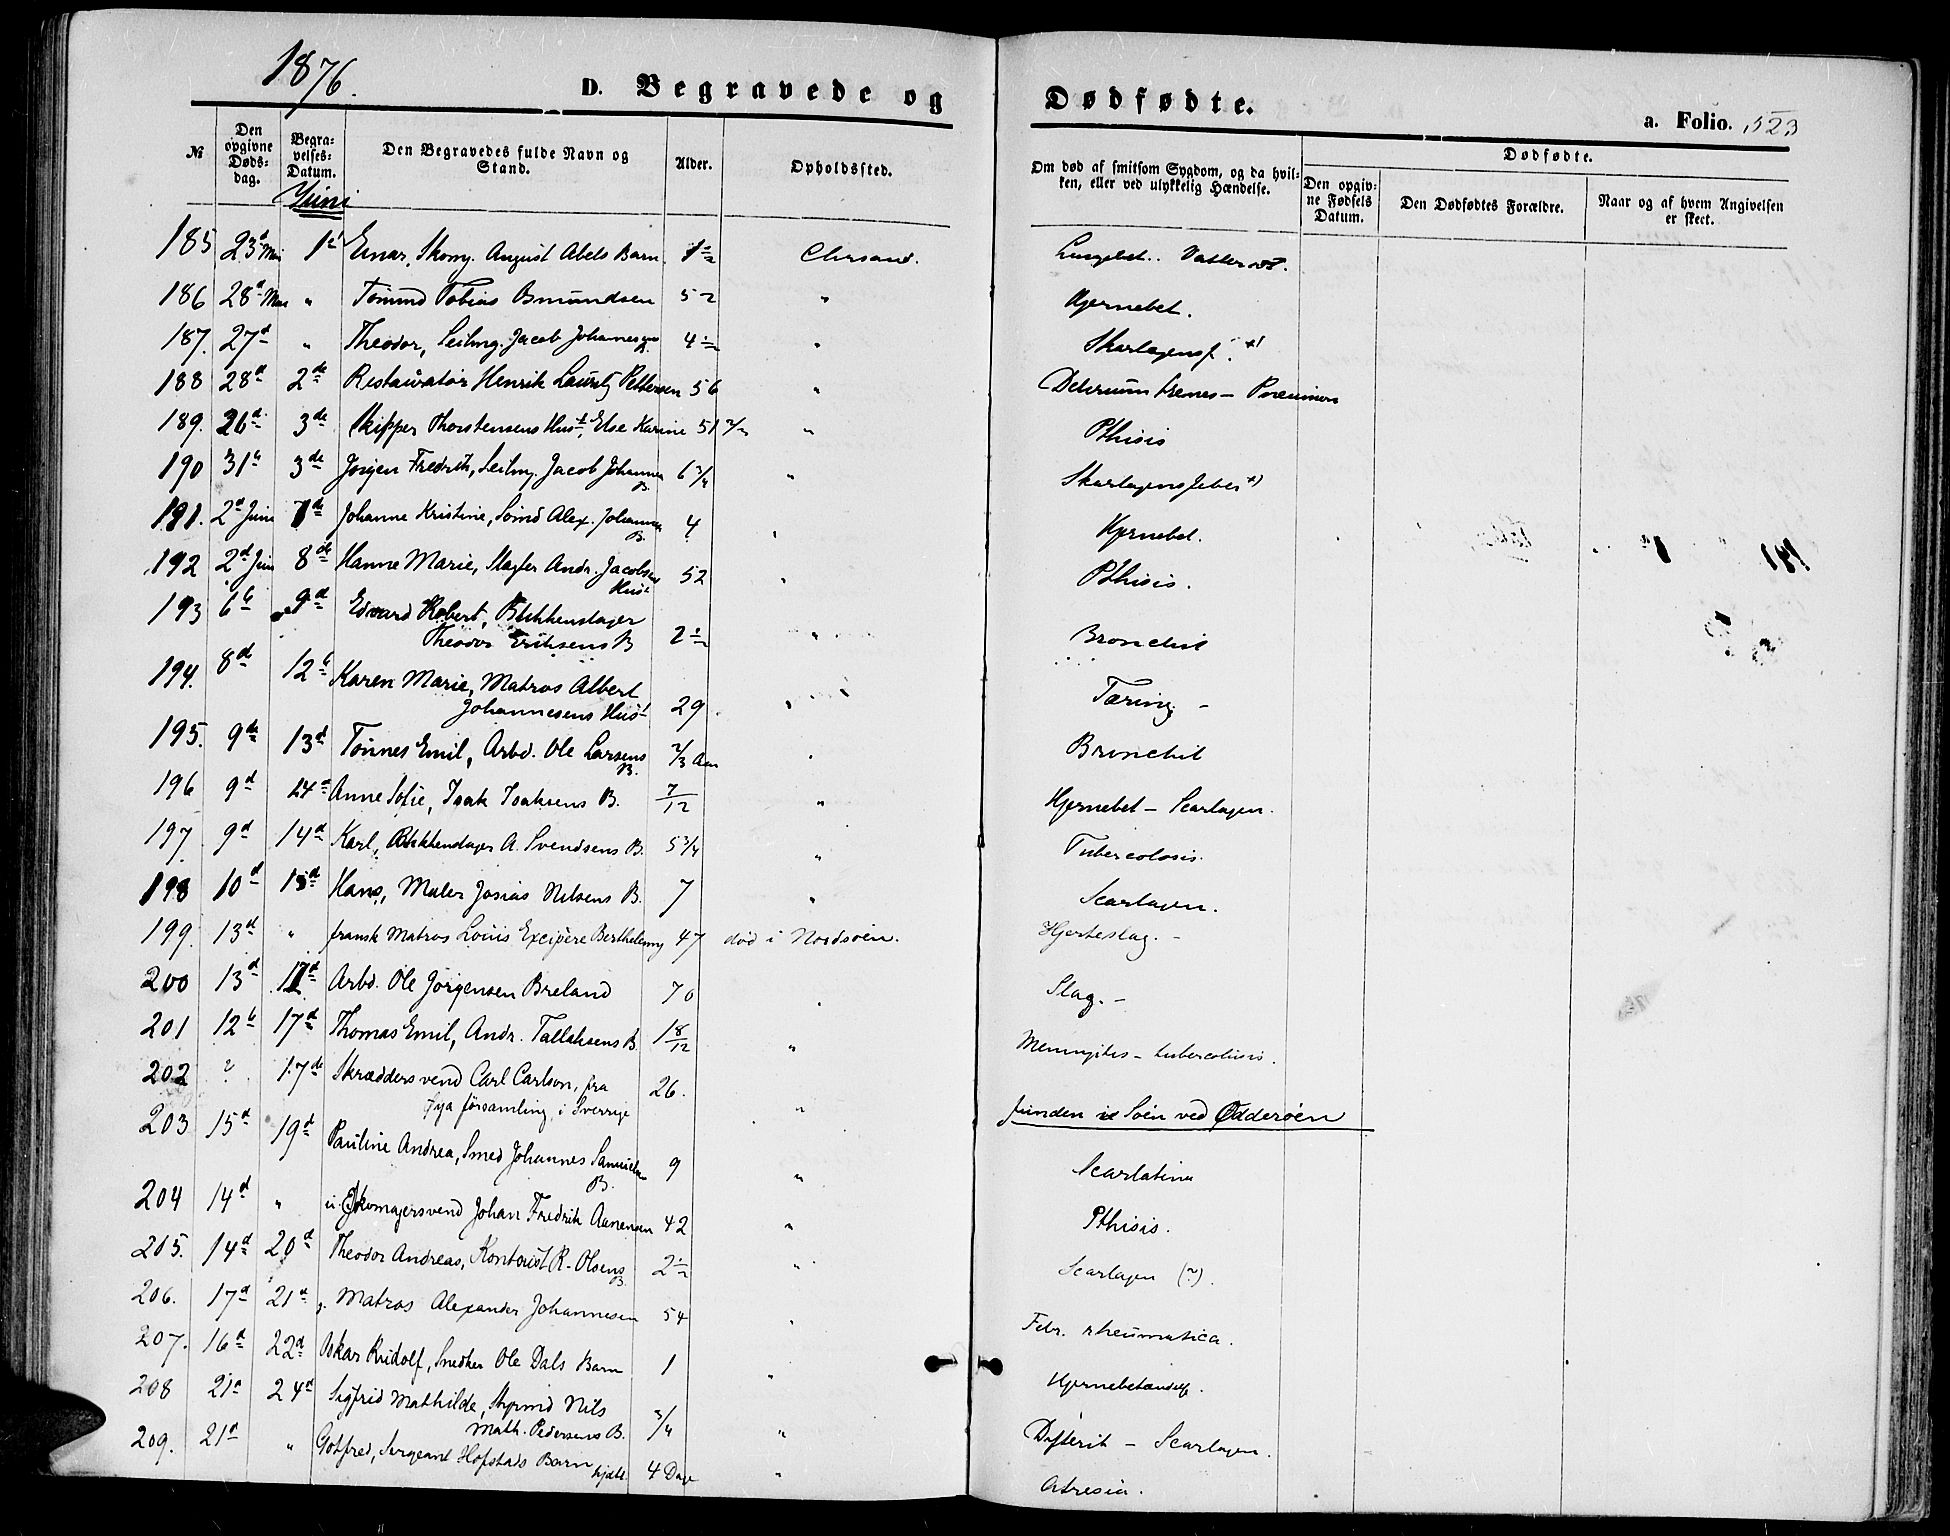 1876.
D. Begravede og Dødfødte.
a. Folio. 523
№
Den opgivne Døds-dag.
Begra-velses-Datum.
Den Begravedes fulde Navn og Stand.
Alder.
Opholdssted.
Om død af smitsom Sygdom, og da hvil-ken, eller ved ulykkelig Hændelse.
Dødfødte.
Den opgiv-ne Fødsels Datum.
Den Dødfødtes Forældre.
Naar og af hvem Angivelsen er skeet.
Juni
185 23d Mai 1st Einar, Skom. August Abels Barn 1½ Chrsand. Lungebet.
186 28d Mai " Tømmd Tobias Osmundsen 52 " Hjernebet.
187. 27d " Theodor, Seilmg. Jacob Johannesens B. 4½ " Skarlagensf. +)
188 28d 2de Restauratør Henrik Lauritz Pettersen 56 " Delerium tremens – Pneumon
189. 26d 3de Skipper Thorstensens Hust, Else Karine 51 " Pthisis
190 31te 3de Jørgen Fredrik, Seilmg. Jacob Johannes B. 6 3/4 " Skarlagensfeber +)
191. 2d Juni 7de Johanne Kristine, Sømd Alex. Johannes B. 4 " Hjernebet.
192 2d Juni 8de Hanne Marie, Slagter Andr. Jacobsens Hust 52 " Pthisis.
193 6te 9d Edvard Robert, Blikkenslager
Theodor Eriksens B 2½ " Bronchit
194. 8d 12te Karen Marie, Matros Albert
Johannesens Hust 29 " Tæring –
195. 9de 13d Tønnes Emil, Arbd. Ole Larsens B. 2/3 Aar " Bronchit
196 9d 14d Anne Sofie, Isak Isaksens B. 7/12 " Hjernebet – Scarlagen.
197 9d 14d Karl, Blikkenslager A. Svendsens B. 5 3/4 " Tubercolosis.
198 10d 15d Hans, Maler Josias Nilsens B. 7 " Scarlagen.
199. 13d " fransk Matros Louis Excipere Berthelemy 47 død i Nordsøen. Hjerteslag. –
200 13d 17d Arbd. Ole Jørgensen Breland 70 " Slag. –
201 12te 17d Thomas Emil, Andr. Tallaksens B. 1 8/12 " Meningites – tubercolosis.
202 ? 17de Skræddersvend Carl Carlson, fra
Øya församling i Sverrige 26. " funden i Søen ved Odderøen
203 15d 19d Pauline Andrea, Smed Johannes Samuelsens B. 9 " Scarlatina
204 14d " u. Skomagersvend Johan Fredrik Aanensen 42 " Pthisis.
205. 14d 20d Theodor Andreas, Kontorist R. Olsens B. 2½ " Scarlagen (?).
206. 17d 21d g. Matros Alexander Johannesen 54 " Febr. rheumatica.
207. 16d 22d Oskar Rudolf, Snedker Ole Dals Barn 1 " Hjernebetændelse.
208 21d 24d Sigfrid Mathilde, Styrmd Nils
Math. Pedersens B. 3/4 " Difterit – Scarlagen.
209. 21d " Gotfred, Sergeant Hofstads Barn hjdbt. 4 Dage " Atresia.